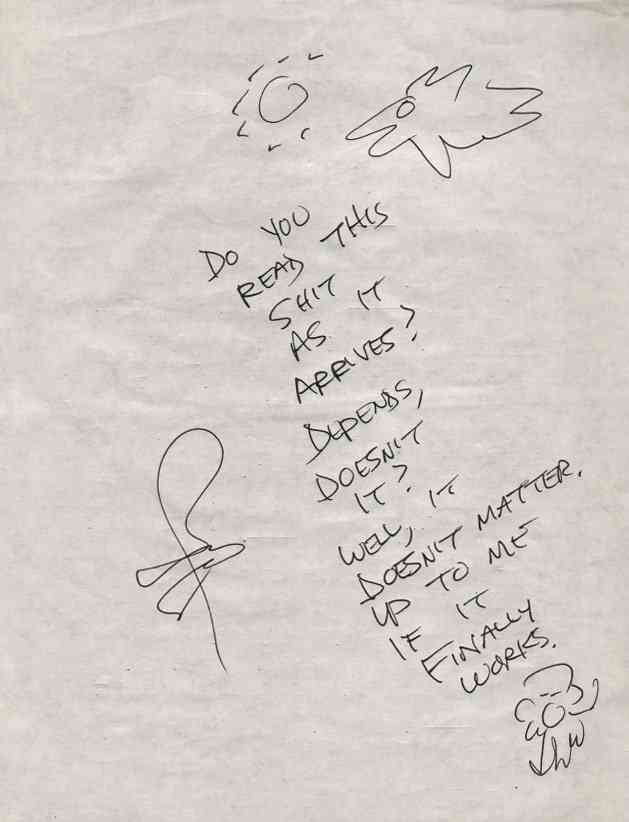 DO YOU
READ THIS
SHIT
AS IT
ARRIVES?
DEPENDS,
DOESN'T
IT?
WELL, IT
DOESN'T MATTER.
UP TO ME
IF IT
FINALLY
WORKS.